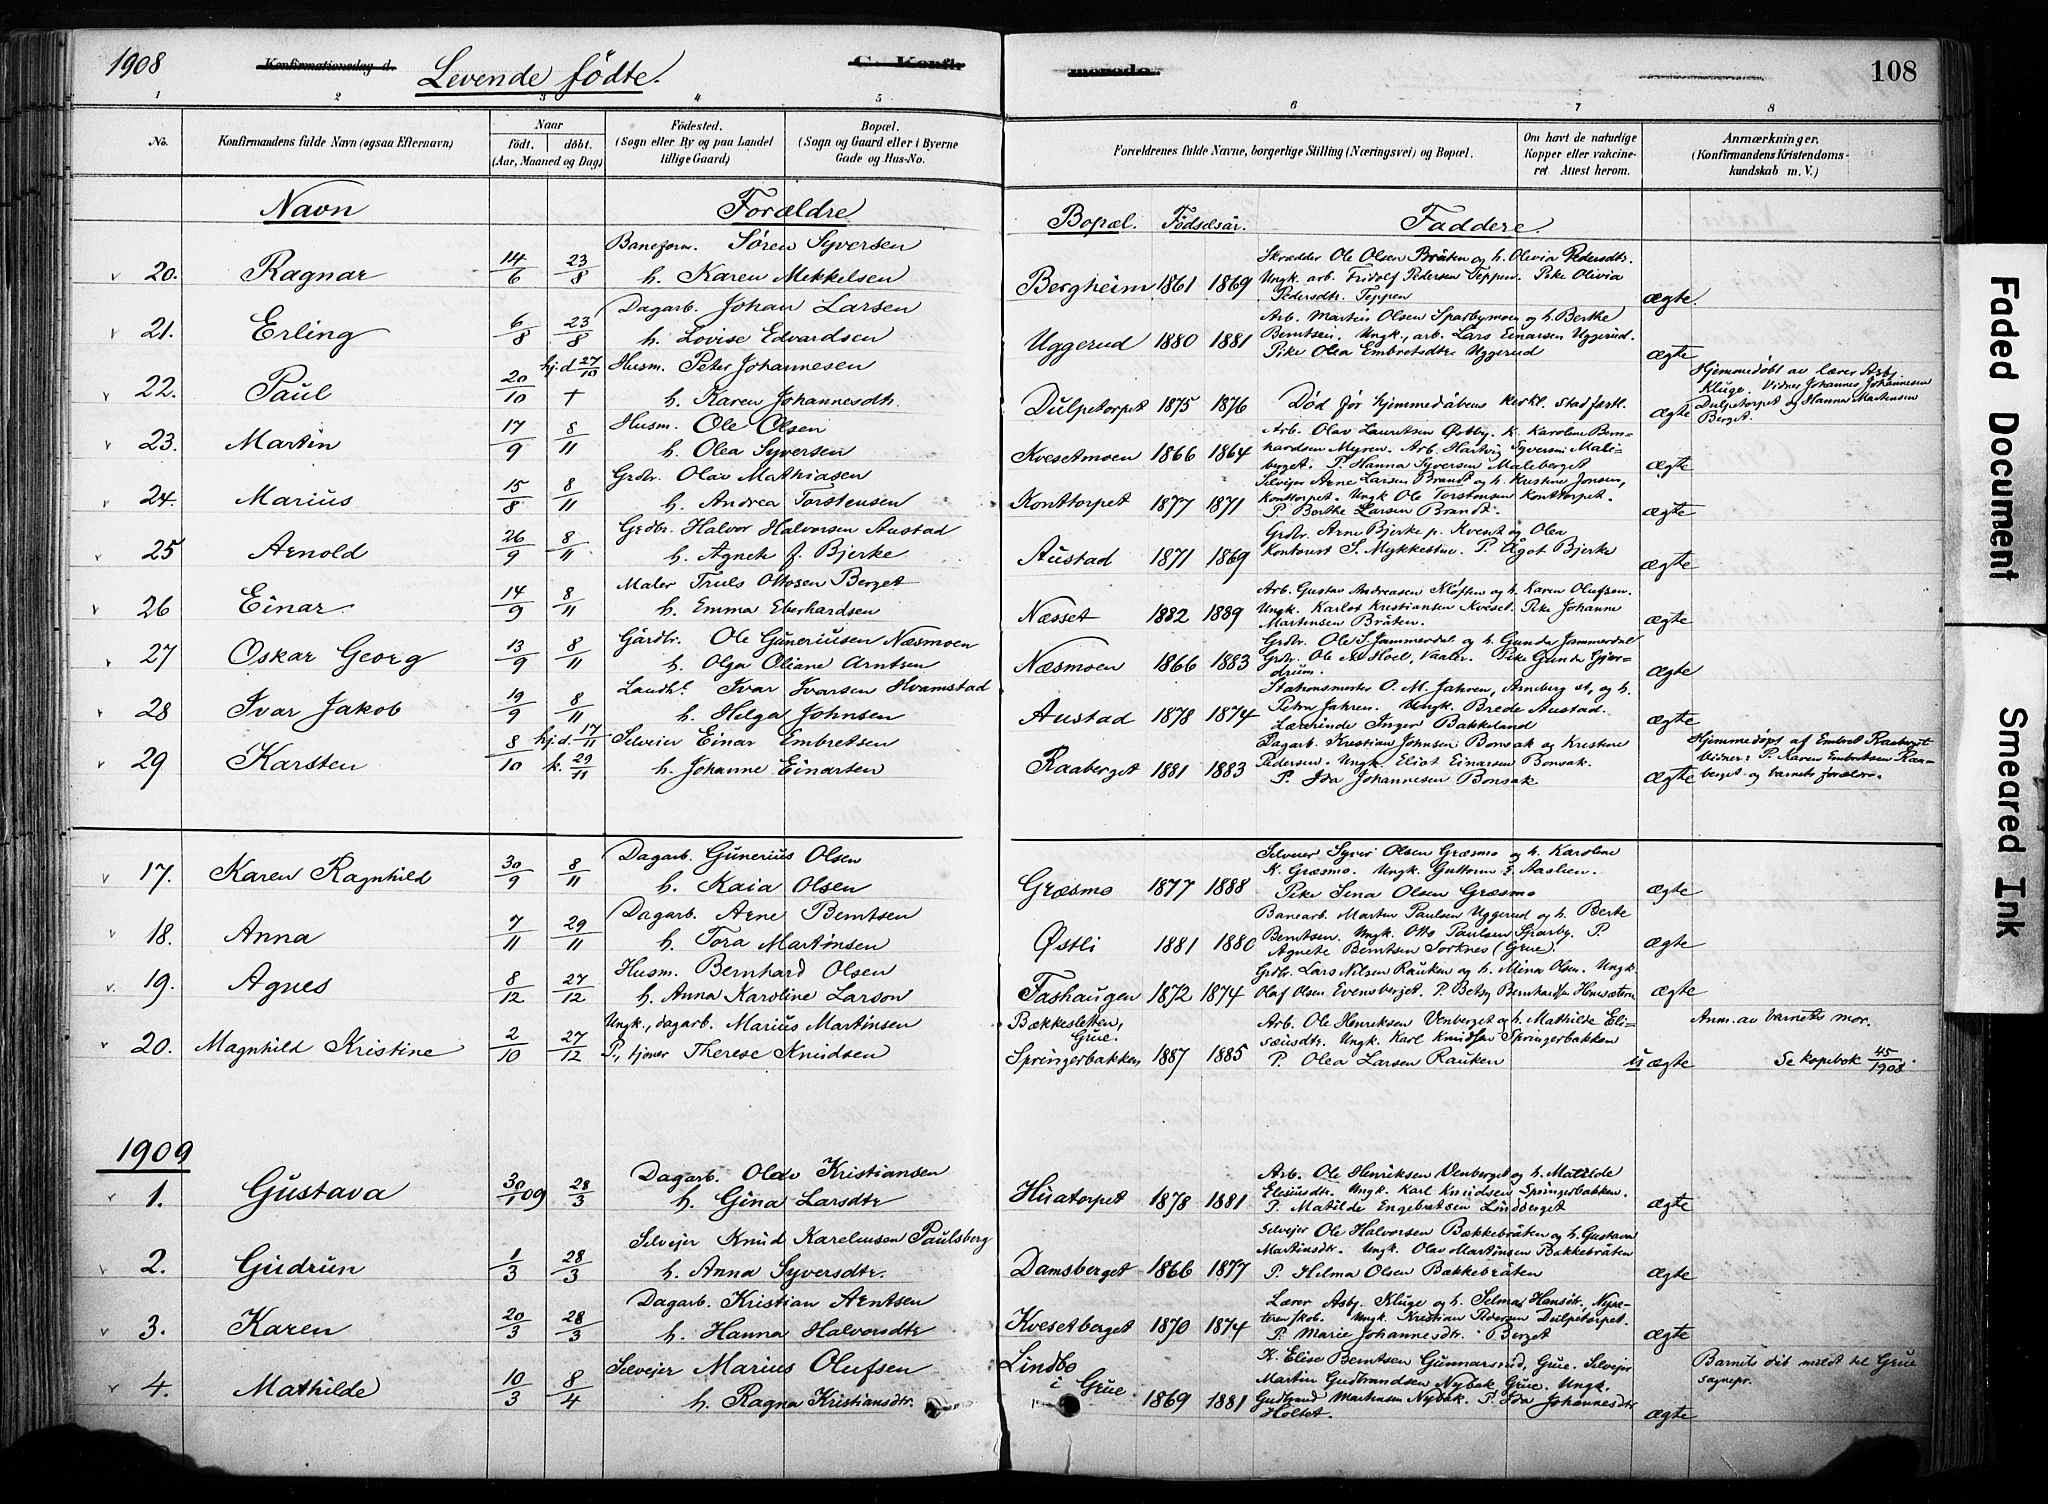 1908 Konfirmationsdag d. Levende fødte. C. Konfir merede. 108
1 2 3 4 5 6 7 8
No. Konfirmandens fulde Navn (ogsaa Efternavn) Naar født. døbt. (Aar, Maaned og Dag) Fødested. (Sogn eller By og paa Landet tillige Gaard) Bopæl. (Sogn og Gaard eller i Byerne Gade og Hus-No. Forældrenes fulde Navne, borgerlige Stilling (Næringsvei) og Bopæl. Om havt de naturlige Kopper eller vakcineret. Attest herom. Anmærkninger. (Konfirmandens Kristendomskundskab m. V.)
Navn Forældre Bopæl. Fødselsår. Faddere.
20. Ragnar 14/6 23/8 Baneform. Søren Syversen
h. Karen Mekkelsen Bergheim 1861 1869
Skrædder Ole Olsen Bråten og h. Olivia Pedersdtr.
Ungk. arb. Fridolf Pedersen Teppen. Pike Olivia
Pedersdtr. Teppen ægte.
21. Erling 6/8 23/8 Dagarb. Johan Larsen
h. Lovise Edvardsen Uggerud 1880 1881
Arb. Martin Olsen Sparbymoen og h. Berthe
Berntsen. Ungk., arb. Lars Einarsen Uggerud.
Pike Olea Embretsdtr. Uggerud ægte
22. Paul 20/10 hj.d. 27/10 † Husm. Peter Johannesen
h. Karen Johannesdtr. Dulpetorpet 1875 1876
Død før hjemmedåbens kirkl. stadfæstl. ægte
Hjemmedøbt av lærer Asbj.
Kluge. Vidner Johannes Johannesen
Dulpetorpet og Hanna Martinsen
Berget.
23. Martin 17/9 8/11 Husm. Ole Olsen
h. Olea Syversen Kvesetmoen 1866 1864
Arb. Olav Lauritsen Østby. K. Karoline Bern-
hardsen Myren. Arb. Hartvig Syversen Mali-
berget. P. Hanna Syversen Maleberget ægte
24. Marius 15/8 8/11 Grdbr. Olav Mathiasen
h. Andrea Torstensen Konttorpet 1877 1871
Selveier Arne Larsen Brandt og h. Kristine Jonsen,
Konttorpet. Ungk Ole Torstensen Konttorpet.
P. Berthe Larsen Brandt. ægte
25 Arnold 26/9 8/11 Grdbr. Halvor Halvorsen Austad
h. Agnete f. Bjerke Austad 1871 1869
Grdbr. Arne Bjerke p. Kveset og Olea
Kontorist S. Mykkestue. P. Ågot Bjerke ægte
26 Einar 14/9 8/11 Maler Truls Ottosen Berget
h. Emma Eberhardsen Næsset 1882 1889
Arb. Gustav Andreasen Kløften og h. Karen Olufsen.
Ungk. Karlot Kristiansen Kveset. Pike Johanne
Martinsen Bråten. ægte
27 Oskar Georg 13/9 8/11 Gårdbr. Ole Guneriusen Næsmoen
h. Olga Oliane Arntsen Næsmoen 1866 1883
Grdbr. Ole S. Jammerdal og h. Gunda Jammerdal
Grdbr. Ole M Hoel, Vaaler. Pike Gunda Gjer-
drum. ægte
28 Ivar Jakob 19/9 8/11 Landh. Ivar Ivarsen Hvamstad
h. Helga Johnsen Austad 1878 1874
Stationsmester O. M. Jahren, Arneberg st., og h.
Petra Jahren. Ungk. Brede Austad.
Lærerinde Inger Bakkeland ægte
29 Karsten 8/10 hj.d. 17/11 k. 29/11 Selveier Einar Embretsen
h. Johanne Einarsen Raaberget 1881 1883
Dagarb. Kristian Johnsen Bonsak og Kristine
Pedersen. Ungk. Eliot Einarsen Bonsak.
P. Ida Johannesen Bonsak ægte
Hjemmedøpt af Embret Raaberget
Vidner: P. Karen Embretsen Raa-
berget og barnets forældre.
17. Karen Ragnhild 30/9 8/11 Dagarb. Gunerius Olsen
h. Kaia Olsen Græsmo 1877 1888
Selveier Syver Olsen Græsmo og h. Karoline
K. Græsmo. Ungk. Guttorm E. Aaslien.
Pike Sina Olsen Græsmo ægte
18. Anna 7/11 29/11 Dagarb. Arne Berntsen
h. Tora Martinsen Østli 1881 1880
Banearb. Martin Paulsen Uggerud og h. Berte
Berntsen. Ungk. Otto Paulsen Sparby. P.
Agnete Berntsen Sorknes (Grue). ægte
19. Agnes 8/12 27/12 Husm. Bernhard Olsen
h. Anna Karoline Larson Fashaugen 1872 1874
Grdbr. Lars Nilsen Rauken og h. Mina Olsen. Ungk.
Olaf Olsen Evensberget. P. Betsy Bernhardsen Hemsæteren ægte
20. Magnhild Kristine 2/10 27/12 Ungk., dagarb. Marius Martinsen
P., tjener Therese Knudsen Bækkesletten, Grue.
Springerbakken 1887 1885
Arb. Ole Henriksen Venberget og h. Mathilde Eli-
sæusdtr. Ungk. Karl Knudsen Springerbakken
P. Olea Larsen Rauken uægte
Anm. av barnets mor.
Se kopibok 45/1908.
1909
1. Gustava 30/1 09 28/3 Dagarb. Olav Kristiansen
h. Gina Larsdtr Huatorpet 1878 1881
Arb. Ole Henriksen Venberget og h. Matilde
Eliæusdtr. Ungk. Karl Knudsen Springerbakken.
P. Matilde Engebretsen Lindberget ægte
2. Gudrun 1/3 28/3 Selvejer Knud Karelinsen Paulsberg
h. Anna Syversdtr. Damsberget 1866 1877
Selvejer Ole Halvorsen Bækkebråten og h. Gustava
Martinsdtr. Ungk. Olav Martinsen Bakkebråten
P. Hilma Olsen Bækkebråten ægte
3. Karen 20/3 28/3 Dagarb. Kristian Arntsen
h. Hanna Halvorsdtr Kvesetberget 1870 1874
Lærer Asbj. Kluge og h. Selma Hansdtr, Nysæ-
teren skob. Ungk. Kristian Pedersen Dulpetorpet.
P. Marie Johannesdtr. Berget ægte
4. Mathilde 10/3 8/4 Selvejer Marius Olufsen
h. Ragna Kristiansdtr. Lindbo i Grue 1869 1881
K. Elise Berntsen Gunnarsrud, Grue. Selvejer
Martin Gudbrandsen Nybak Grue. Ungk.
Gudbrand Martinsen Nybak. P. Ida Johannesdtr
Holtet. ægte
Barnets dåb meldt til Grue
sognepr.
Faded Document
Smeared Ink